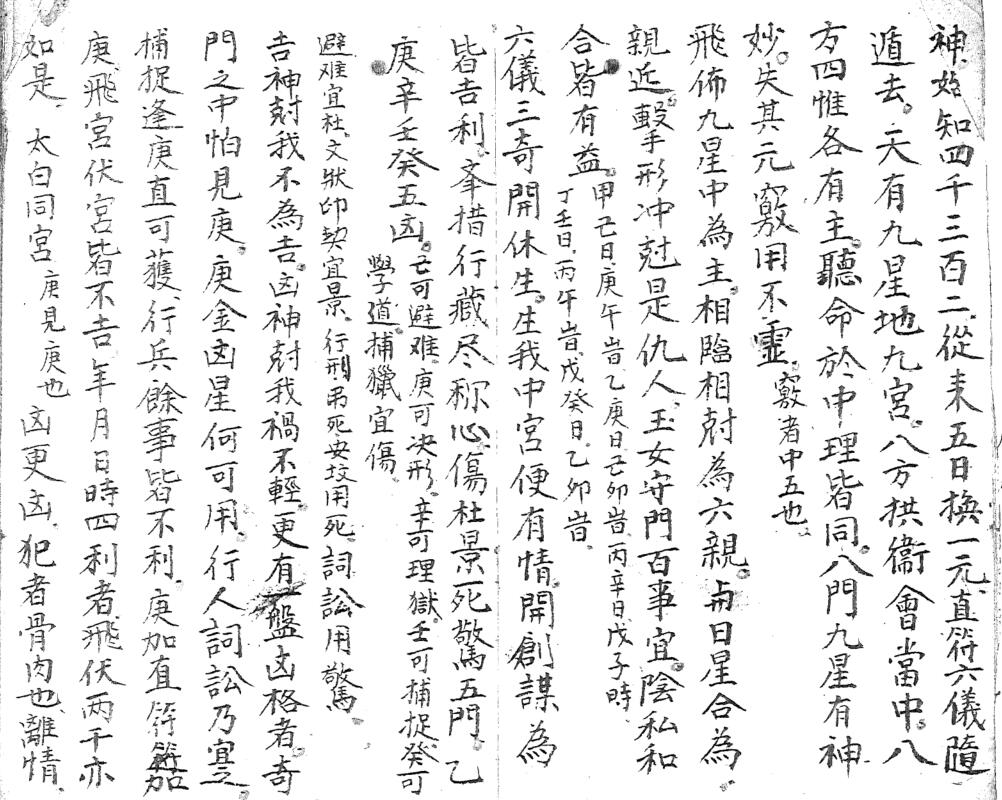 神始知四千三百二從来五日換一元直符六儀隨
遁去天有九星地九宮八方拱衞會當中八
方四惟各有主聽命於中理皆同八門九星有神
妙失其元竅用不靈竅者中五也
飛佈九星中為主相臨相尅為六親与日星合為
親近擊形冲尅是仇人玉女守門百事宜陰私和
合皆有益甲己日庚午旹乙庚日己卯旹丙辛日戊子時
丁壬日丙午旹戊癸日乙卯旹
六儀三奇開休生生我中宮便有情開創謀為
皆吉利举措行藏尽称心傷杜景死驚五門乙
庚辛壬癸五凶己可避难庚可决形辛可理獄壬可捕捉癸可
學道捕獵宜傷
避难宜杜文狀印契宜景行刑弔死安坟用死詞訟用驚
吉神尅我不為吉凶神尅我禍不輕更有一盤凶格者奇
門之中怕見庚庚金凶星何可用行人詞訟乃宜之
捕捉逢庚直可獲行兵餘事皆不利庚加直符符加
庚飛宮伏宮皆不吉年月日時四利者飛伏兩干亦
如是太白同宮庚見庚也凶更凶犯者骨肉也離情